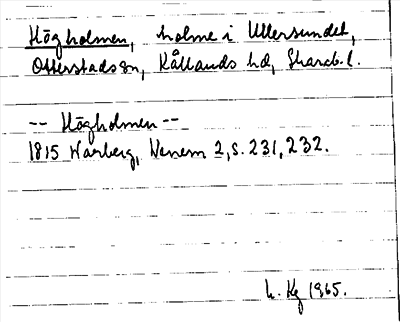 Högholmen, holme i Ullersundet,
Otterstads sn, Kållands hd, Skarab. l.
-- Högholmen --
1815 Warberg, Venern 2, s. 231, 232.
L. Kg 1965.